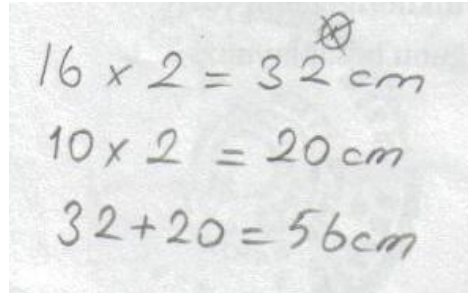 16 × 2 = 32 cm
10 × 2 = 20 cm
32 + 20 = 56 cm